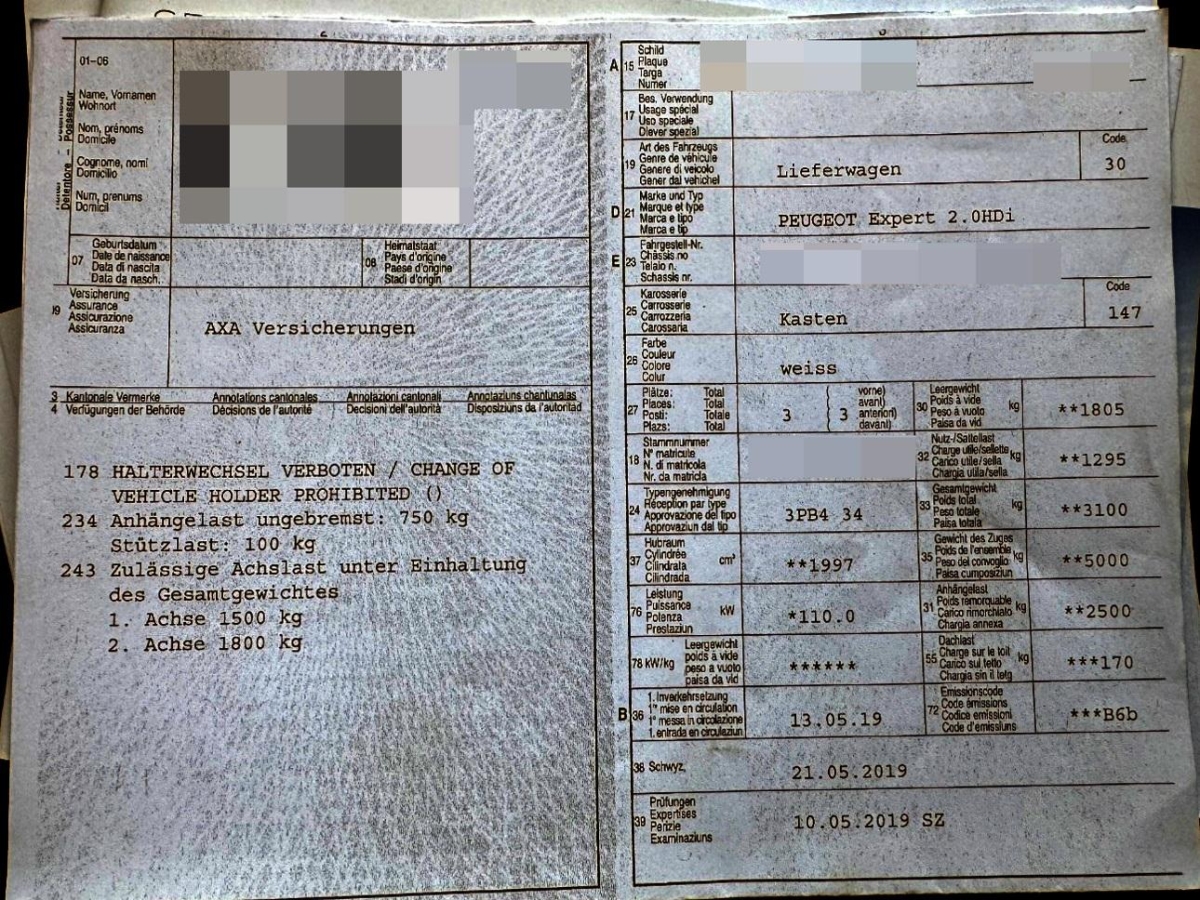 01-06
Name, Vornamen
Wohnort
Nom, prénoms
Domicile
Cognome, nomi
Domicilio
Num, prenums
Domicil
Détentore - Possessur
07 Geburtsdatum
Date de naissance
Data di nascita
Data da nasch.
08 Heimatstaat
Pays d'origine
Paese d'origine
Stadi d'origin
09 Versicherung
Assurance
Assicurazione
Assicuranza
AXA Versicherungen
3 Kantonale Vermerke Annotations cantonales Annotazioni cantonali Annotaziuns chantunalas
4 Verfügungen der Behörde Décisions de l'autorité Decisioni dell'autorità Disposiziuns da l'autoritad
178 HALTERWECHSEL VERBOTEN / CHANGE OF
VEHICLE HOLDER PROHIBITED ()
234 Anhängelast ungebremst: 750 kg
Stützlast: 100 kg
243 Zulässige Achslast unter Einhaltung
des Gesamtgewichtes
1. Achse 1500 kg
2. Achse 1800 kg
A 15 Schild
Plaque
Targa
Numer
17 Bes. Verwendung
Usage spécial
Uso speciale
Diever spezial
19 Art des Fahrzeugs
Genre de véhicule
Genere di veicolo
Gener dal vehichel
Lieferwagen
Code
30
D 21 Marke und Typ
Marque et type
Marca e tipo
Marca e tip
PEUGEOT Expert 2.0HDi
E 23 Fahrgestell-Nr.
Châssis no
Telaio n.
Schassis nr.
25 Karosserie
Carrosserie
Carrozzeria
Carossaria
Kasten
Code
147
26 Farbe
Couleur
Colore
Colur
weiss
27 Plätze: Total
Places: Total
Posti: Totale
Plazs: Total
3 3
vorne)
avant)
anteriori)
davant)
30 Leergewicht
Poids à vide
Peso a vuoto
Paisa da vid
kg
**1805
18 Stammnummer
N° matricule
N. di matricola
Nr. da matricla
32 Nutz-/Sattellast
Charge utile/sellette
Carico utile/sella
Chargia utila/sella
kg
**1295
24 Typengenehmigung
Réception par type
Approvazione del tipo
Approvaziun dal tip
3PB4 34
33 Gesamtgewicht
Poids total
Peso totale
Paisa totala
kg
**3100
37 Hubraum
Cylindrée
Cilindrata
Cilindrada
cm³
**1997
35 Gewicht des Zuges
Poids de l'ensemble
Peso del convoglio
Paisa cumposiziun
kg
**5000
76 Leistung
Puissance
Potenza
Prestaziun
kW
*110.0
31 Anhängelast
Poids remorquable
Carico rimorchiato
Chargia annexa
kg
**2500
78 kW/kg
Leergewicht
poids à vide
peso a vuoto
paisa da vid
******
55 Dachlast
Charge sur le toit
Carico sul tetto
Chargia sin il tetg
kg
***170
B 36 1. Inverkehrsetzung
1re mise en circulation
1a messa in circolazione
1. entrada en circulaziun
13.05.19
72 Emissionscode
Code émissions
Codice emissioni
Code d'emissiuns
***B6b
38 Schwyz,
21.05.2019
39 Prüfungen
Expertises
Perizie
Examinaziuns
10.05.2019 SZ